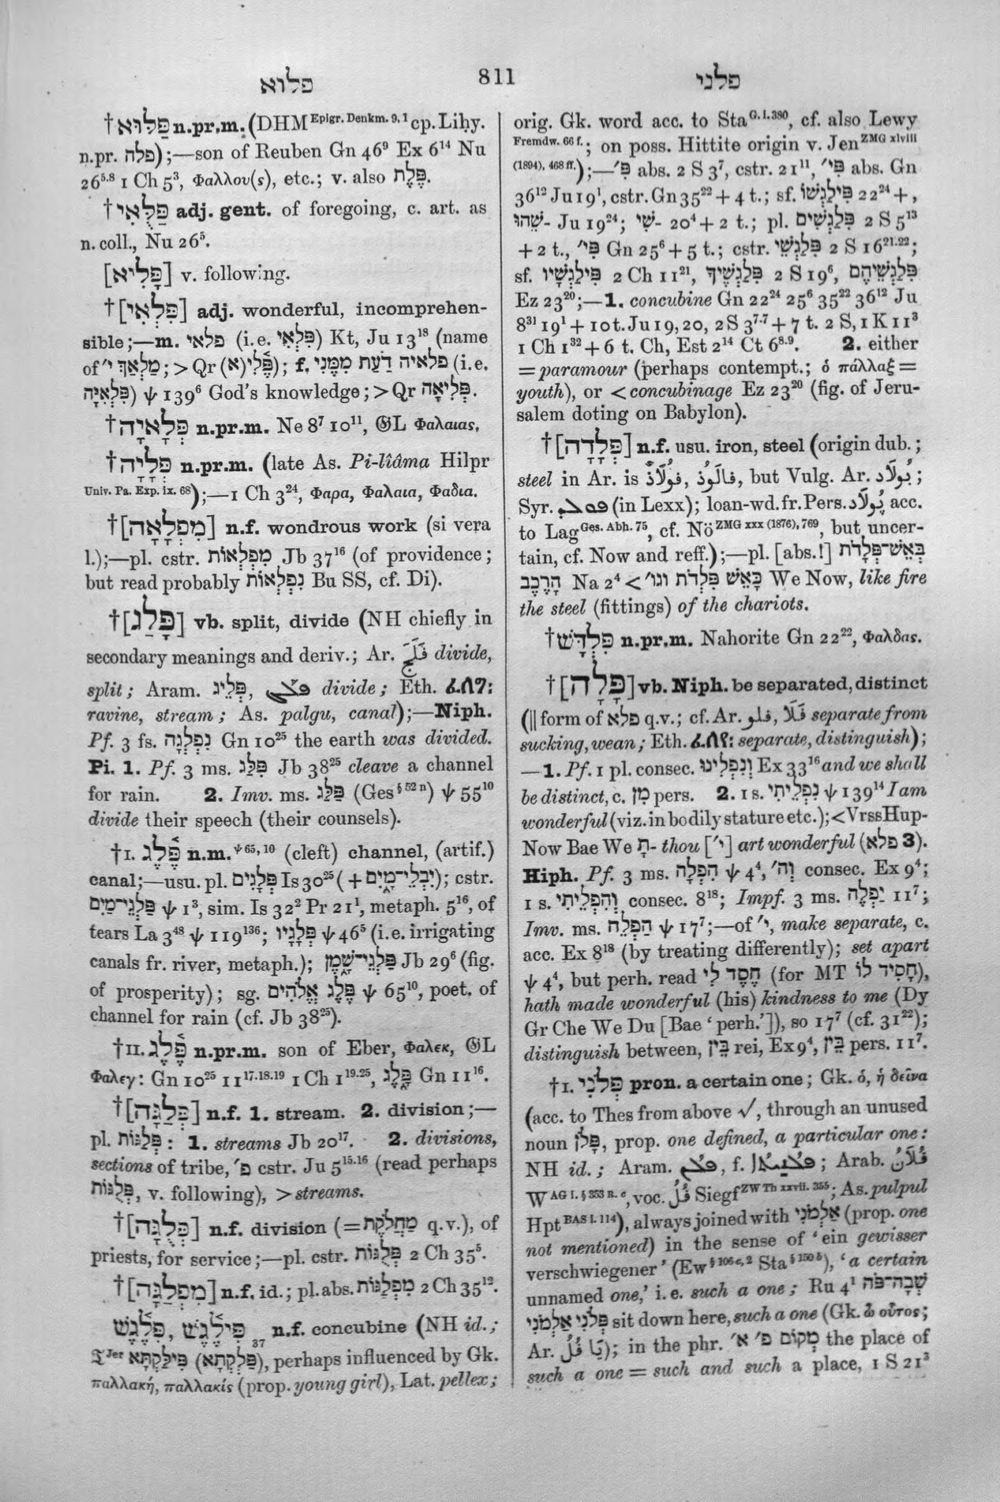 פלוא
811
פלני
†פַּלּוּא n.pr.m. (DHM Epigr. Denkm. 9, 1 cp. Liḥy.
n.pr. פלה);—son of Reuben Gn 46⁹ Ex 6¹⁴ Nu
26⁵·⁸ 1 Ch 5³, Φαλλου(s), etc.; v. also פֶּלֶת.
†פַּלֻּאִי adj. gent. of foregoing, c. art. as
n. coll., Nu 26⁵.
[פָּלִיא] v. following.
†[פִּלְאִי] adj. wonderful, incomprehen-
sible;—m. פלאי (i.e. פִּלְאִי) Kt, Ju 13¹⁸ (name
of מַלְאַךְ י׳; > Qr פֶּ֫לִי(א)); f. פלאיה דַעַת מִמֶּנִּי (i.e.
פִּלְאִיָּה) ψ 139⁶ God's knowledge; > Qr פְּלִיאָה.
†פְּלָאיָה n.pr.m. Ne 8⁷ 10¹¹, 𝔊L Φαλαιας,
†פְּלָיָה n.pr.m. (late As. Pi-lîâma Hilpr
Univ. Pa. Exp. ix. 68);—1 Ch 3²⁴, Φαρα, Φαλαια, Φαδια.
†[מִפְלָאָה] n.f. wondrous work (si vera
l.);—pl. cstr. מִפְלְאוֹת Jb 37¹⁶ (of providence;
but read probably נִפְלְאוֹת Bu SS, cf. Di).
†[פָּלַג] vb. split, divide (NH chiefly in
secondary meanings and deriv.; Ar. فَلَجَ divide,
split; Aram. פְּלֵיג, ܦܠܓ divide; Eth. ፈለገ፡
ravine, stream; As. palgu, canal);—Niph.
Pf. 3 fs. נִפְלְגָה Gn 10²⁵ the earth was divided.
Pi. 1. Pf. 3 ms. פִּלַּג Jb 38²⁵ cleave a channel
for rain. 2. Imv. ms. פַּלַּג (Ges § 52 n) ψ 55¹⁰
divide their speech (their counsels).
†I. פֶּ֫לֶג n.m. ψ 65, 10 (cleft) channel, (artif.)
canal;—usu. pl. פְּלָגִים Is 30²⁵ (+ יִבְלֵי־מָיִם); cstr.
פַּלְגֵי־מַיִם ψ 1³, sim. Is 32² Pr 21¹, metaph. 5¹⁶, of
tears La 3⁴⁸ ψ 119¹³⁶; פְּלָגָיו ψ 46⁵ (i.e. irrigating
canals fr. river, metaph.); פַּלְגֵי־שָׁמֶן Jb 29⁶ (fig.
of prosperity); sg. פֶּלֶג אֱלֹהִים ψ 65¹⁰, poet. of
channel for rain (cf. Jb 38²⁵).
†II. פֶּ֫לֶג n.pr.m. son of Eber, Φαλεκ, 𝔊L
Φαλεγ: Gn 10²⁵ 11¹⁷·¹⁸·¹⁹ 1 Ch 1¹⁹·²⁵, פָּלֶג Gn 11¹⁶.
†[פְּלַגָּה] n.f. 1. stream. 2. division;—
pl. פְּלַגּוֹת: 1. streams Jb 20¹⁷. 2. divisions,
sections of tribe, פ׳ cstr. Ju 5¹⁵·¹⁶ (read perhaps
פְּלֻגּוֹת, v. following), > streams.
†[פְּלֻגָּה] n.f. division (= מַחֲלֹקֶת q.v.), of
priests, for service;—pl. cstr. פְּלֻגּוֹת 2 Ch 35⁵.
†[מִפְלַגָּה] n.f. id.; pl. abs. מִפְלַגּוֹת 2 Ch 35¹².
פִּילֶ֫גֶשׁ, פִּלֶ֫גֶשׁ 37 n.f. concubine (NH id.;
𝔗Jer פִּילַקְתָּא (פַּלְקְתָא), perhaps influenced by Gk.
παλλακή, παλλακίς (prop. young girl), Lat. pellex;
orig. Gk. word acc. to Sta G. i. 380, cf. also Lewy
Fremdw. 66 f.; on poss. Hittite origin v. Jen ZMG xlviii
(1894), 468 ff.);—פ׳ abs. 2 S 3⁷, cstr. 21¹¹, פִּי׳ abs. Gn
36¹² Ju 19¹, cstr. Gn 35²² + 4 t.; sf. פִּילַגְשׁוֹ 22²⁴ +,
־שֵׁהוּ Ju 19²⁴; ־שִׁי 20⁴ + 2 t.; pl. פִּלַגְשִׁים 2 S 5¹³
+ 2 t., פִּי׳ Gn 25⁶ + 5 t.; cstr. פִּלַגְשֵׁי 2 S 16²¹·²²;
sf. פִּילַגְשָׁיו 2 Ch 11²¹, פִּלַגְשֶׁיךָ 2 S 19⁶, פִּלַגְשֵׁיהֶם
Ez 23²⁰;—1. concubine Gn 22²⁴ 25⁶ 35²² 36¹² Ju
8³¹ 19¹ + 10 t. Ju 19, 20, 2 S 3⁷·⁷ + 7 t. 2 S, 1 K 11³
1 Ch 1³² + 6 t. Ch, Est 2¹⁴ Ct 6⁸·⁹. 2. either
= paramour (perhaps contempt.; ὁ πάλλαξ =
youth), or < concubinage Ez 23²⁰ (fig. of Jeru-
salem doting on Babylon).
†[פְּלָדָה] n.f. usu. iron, steel (origin dub.;
steel in Ar. is فُولَاذٌ, فَالُوذٌ, but Vulg. Ar. بُولَاد;
Syr. (in Lexx); loan-wd. fr. Pers. پُولَاد acc.
to Lag Ges. Abh. 75, cf. Nö ZMG xxx (1876), 769, but uncer-
tain, cf. Now and reff.);—pl. [abs.!] בְּאֵשׁ־פְּלָדֹת
הָרֶכֶב Na 2⁴ < כָּאֵשׁ פִּלְדֹת וגו׳ We Now, like fire
the steel (fittings) of the chariots.
†פִּלְדָּשׁ n.pr.m. Nahorite Gn 22²², Φαλδας.
†[פָּלָה] vb. Niph. be separated, distinct
(|| form of פלא q.v.; cf. Ar. فلو, فَلَا separate from
sucking, wean; Eth. ፈለየ፡ separate, distinguish);
—1. Pf. 1 pl. consec. וְנִפְלִינוּ Ex 33¹⁶ and we shall
be distinct, c. מִן pers. 2. 1 s. נִפְלֵיתִי ψ 139¹⁴ I am
wonderful (viz. in bodily stature etc.); < VrssHup-
Now Bae We תָ֫־ thou [י׳] art wonderful (פלא 3).
Hiph. Pf. 3 ms. הִפְלָה ψ 4⁴, וְה׳ consec. Ex 9⁴;
1 s. וְהִפְלֵיתִי consec. 8¹⁸; Impf. 3 ms. יַפְלֶה 11⁷;
Imv. ms. הַפְלֵה ψ 17⁷;—of י׳, make separate, c.
acc. Ex 8¹⁸ (by treating differently); set apart
ψ 4⁴, but perh. read חֶסֶד לִי (for MT חָסִיד לוֹ),
hath made wonderful (his) kindness to me (Dy
Gr Che We Du [Bae 'perh.']), so 17⁷ (cf. 31²²);
distinguish between, בֵּין rei, Ex 9⁴, בֵּין pers. 11⁷.
†I. פְּלֹנִי pron. a certain one; Gk. ὁ, ἡ δεῖνα
(acc. to Thes from above √, through an unused
noun פָּלֹן, prop. one defined, a particular one:
NH id.; Aram. ܦܠܢ, f. ܦܠܢܝܬܐ; Arab. فُلَانٌ
W AG i. § 353 R. c, voc. فُلُ Siegf ZW Th xxvii. 355; As. pulpul
Hpt BAS i. 114), always joined with אַלְמֹנִי (prop. one
not mentioned) in the sense of 'ein gewisser
verschwiegener' (Ew § 106 c, 2 Sta § 150 b), 'a certain
unnamed one,' i.e. such a one; Ru 4¹ שְׁבָה־פֹּה
פְּלֹנִי אַלְמֹנִי sit down here, such a one (Gk. ὦ οὗτος;
Ar. يَا فُلُ); in the phr. מְקוֹם פ׳ א׳ the place of
such a one = such and such a place, 1 S 21³